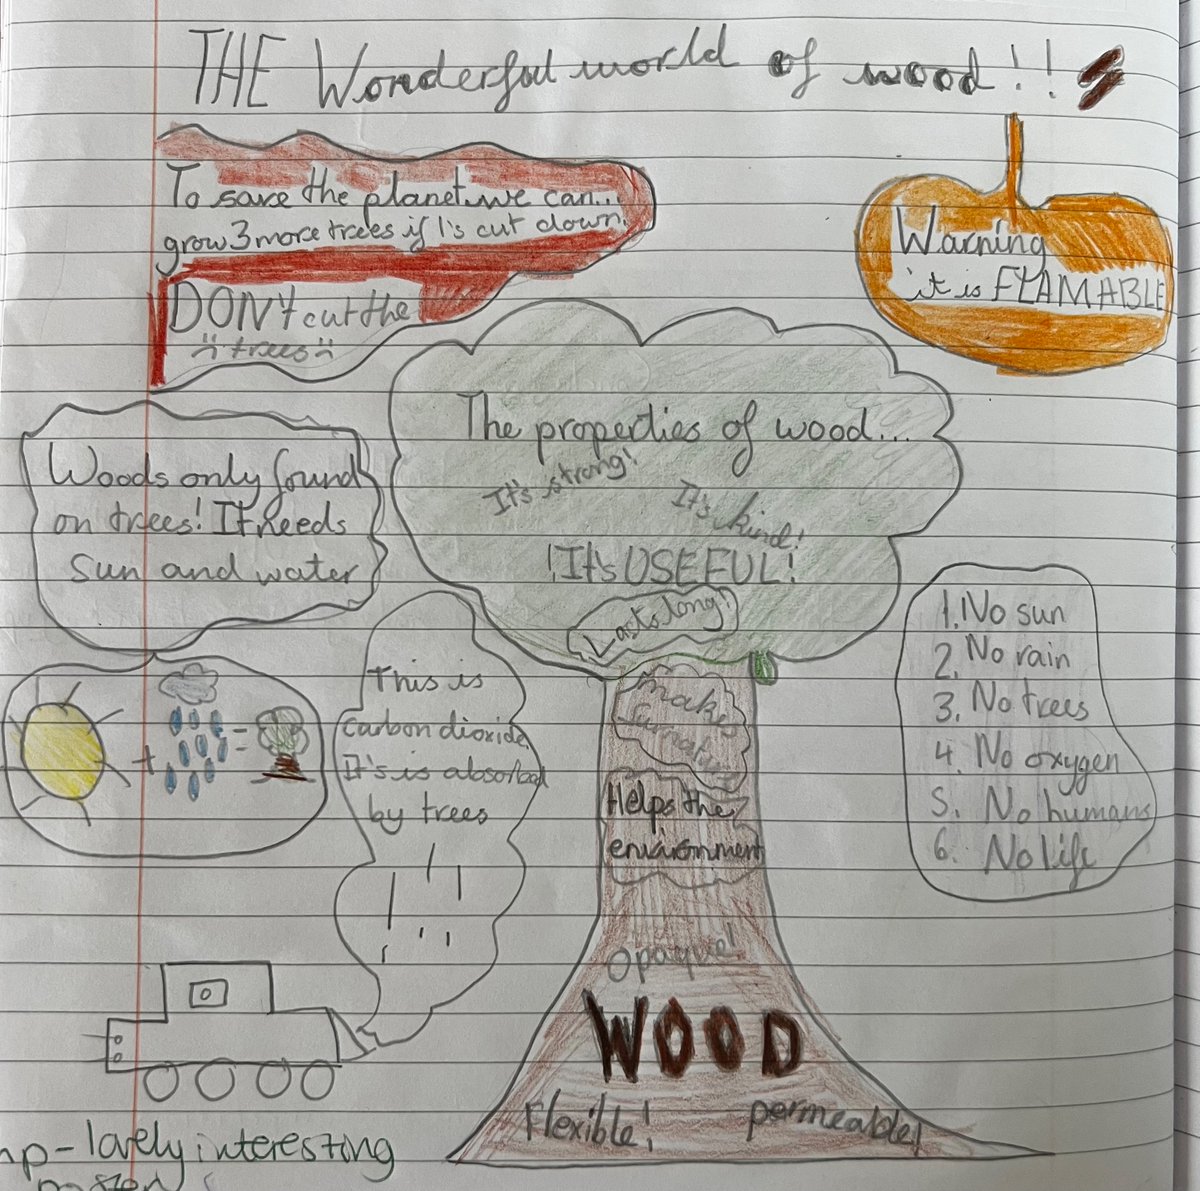 THE Wonderful world of wood!!
To save the planet we can...
grow 3 more trees if 1's cut down.
DON't cut the
trees
Warning
it is FLAMABLE
The properties of wood...
It's strong!
It's kind!
!It's USEFUL!
Lasts long!
makes
furnature
Helps the
enviornment
Opaque!
WOOD
Flexible!
permeable!
Woods only found
on trees! It needs
Sun and water
+
=
This is
carbon dioxide.
It's is absorbed
by trees
1. No sun
2. No rain
3. No trees
4. No oxygen
5. No humans
6. No life
- lovely interesting
poster